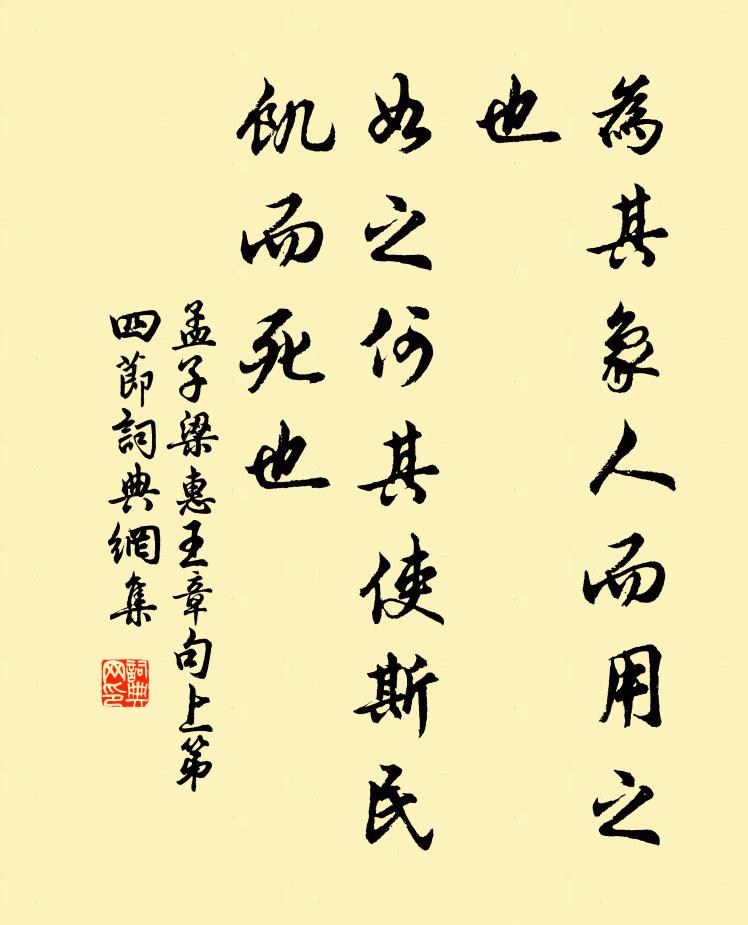 為其象人而用之
也
如之何其使斯民
飢而死也
孟子梁惠王章句上第
四節詞典網集
詞典
网印